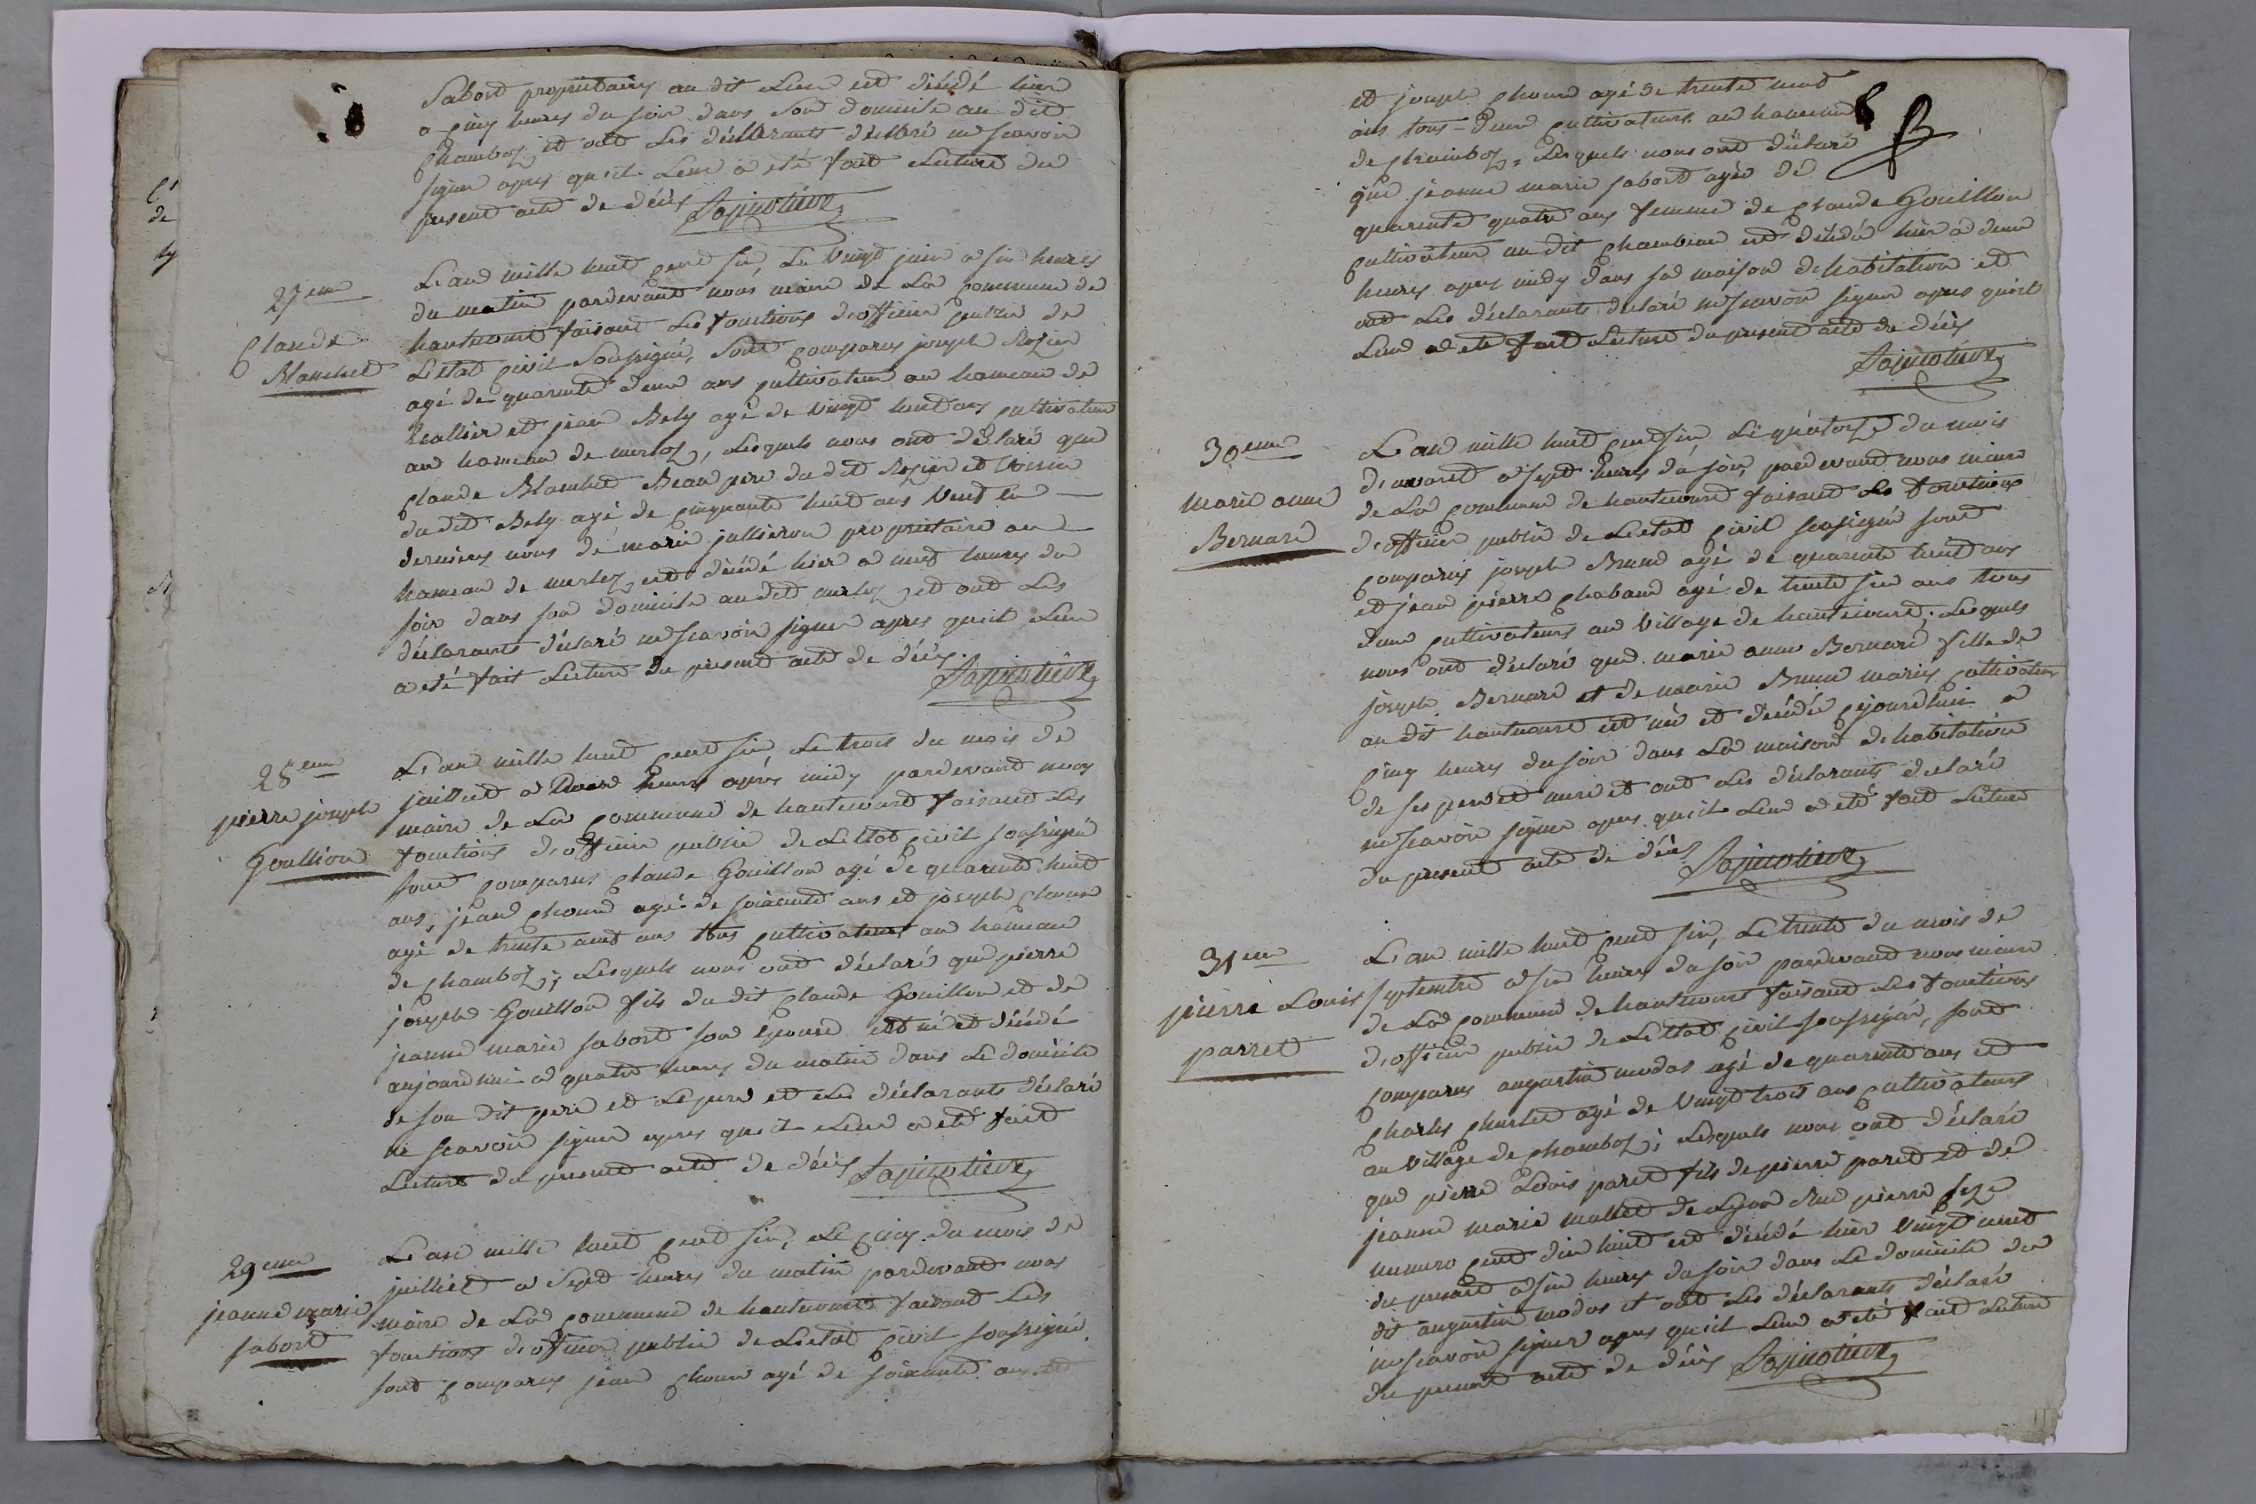 Sabord propriétaires au dit Lieu est décédé hier
a cinq heures du soir dans son domicile au dit
Chamboz, et ont les déclarants déclaré ne scavoir
signer apres qu'il Leur a été fait Lecture du
present acte de décès Lapicotiere
27eme
Claude
Blanchet
L'an mille huit cent six, Le vingt juin a six heures
du matin pardevant nous maire de La commune de
hautecourt faisant Les fonctions d'officier public de
L'etat civil soussigné, sont comparus joseph Rozier
agé de quarante deux ans cultivateur au hameau de
et jean Bely agé de vingt huit ans cultivateur
au hameau de merloz, Lesquels nous ont déclaré que
Claude Blanchet Beau pere du dit Rozier et voisin
du dit Bely agé de cinquante huit ans veuf en
dernieres noces de marie jullieron propriétaire au
hameau de merloz est décédé hier a neuf heures du
soir dans son domicile au dit merloz et ont Les
déclarants déclaré ne scavoir signer apres qu'il Leur
a été fait Lecture du present acte de décès Lapicotiere
28eme
pierre joseph
Gouillon
L'an mille huit cent six, Le trois du mois de
juillet a deux heures aprés midy pardevant nous
maire de La commune de hautecourt faisant Les
fonctions d'officier public de L'etat civil soussigné
sont comparus claude Gouillon agé de quarante huit
ans, jean chorin agé de soixante ans et joseph chorin
agé de trente neuf ans tous cultivateurs au hameau
de chamboz; Lesquels nous ont déclaré que pierre
joseph Gouillon fils du dit claude Gouillon et de
jeanne marie sabord son épouse est né et décédé
aujourd'hui a quatre heures du matin dans Le domicile
de son dit pere et Le pere et Les déclarants déclaré
ne scavoir signer apres qu'il Leur a été fait
Lecture du present acte de décès Lapicotiere
29eme
jeanne marie
sabord
L'an mille huit cent six, Le cinq du mois de
juilliet a sept heures du matin pardevant nous
maire de La commune de hautecourt faisant Les
fonctions d'officier public de L'etat civil soussigné
sont comparus jean chorin agé de soixante ans et
et joseph chorin agé de trente neuf
ans tous deux cultivateurs au hameau
de chamboz, Lesquels nous ont déclaré
que jeanne marie sabord agée de
quarante quatre ans femme de claude Gouillon
cultivateur au dit est décédée hier a deux
heures apres midy dans sa maison d'habitation et
ont Les déclarants déclaré ne scavoir signer apres qu'il
Leur a été fait Lecture du present acte de décès
Lapicotiere
30eme
marie anne
Bernard
L'an mille huit cent six, Le quatorze du mois
d' a sept heures du soir, pardevant nous maire
de La commune de hautecourt faisant Les fonctions
d'officier public de L'etat civil soussigné sont
comparus joseph Brun agé de quarante huit ans
et jean pierre chaband agé de trente six ans tous
deux cultivateurs au village de hautecourt, Lesquels
nous ont déclaré que marie anne Bernard fille de
joseph Bernard et de marie Brun mariés cultivateurs
au dit hautecourt est née et décédée cejourd'hui a
cinq heures du soir dans La maison d'habitation
de ses pere et mere et ont Les déclarants déclaré
ne scavoir signer apres qu'il Leur a été fait Lecture
du present acte de décès Lapicotiere
31eme
pierre Louis
parret
L'an mille huit cent six, Le trente du mois de
septembre a six heures du soir pardevant nous maire
de La commune de hautecourt faisant Les fonctions
d'officier public de L'etat civil soussigné, sont
comparus augustin modas agé de quarante ans et
charles agé de vingt trois ans cultivateurs
au village de chamboz; Lesquels nous ont déclaré
que pierre Louis paret fils de pierre paret et de
jeanne marie mallet de Lyon Rue pierre
numero cent dix huit est décédé hier vingt neuf
du present a six heures du soir dans Le domicile du
dit augustin modas et ont Les déclarants déclaré
ne scavoir signer apres qu'il Leur a été fait Lecture
du present acte de décès Lapicotiere